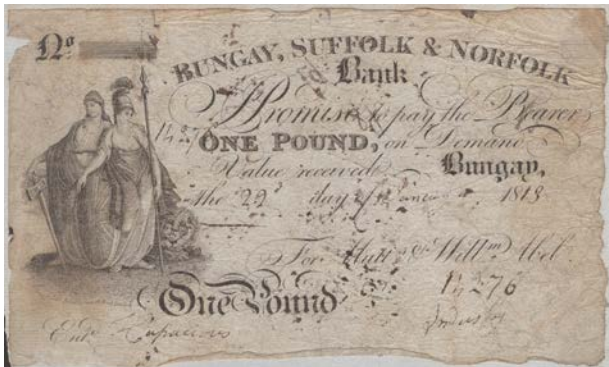 No
BUNGAY, SUFFOLK & NORFOLK
Bank
I Promise to pay the Bearer
ONE POUND, on Demand
Value received Bungay,
the 22d day of 1813
For & Willm Abel
One Pound
Entd